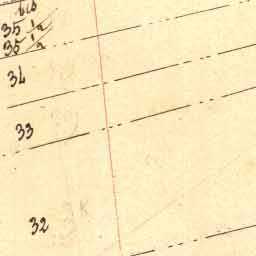 35 1/2
35 1/2
34
33
32